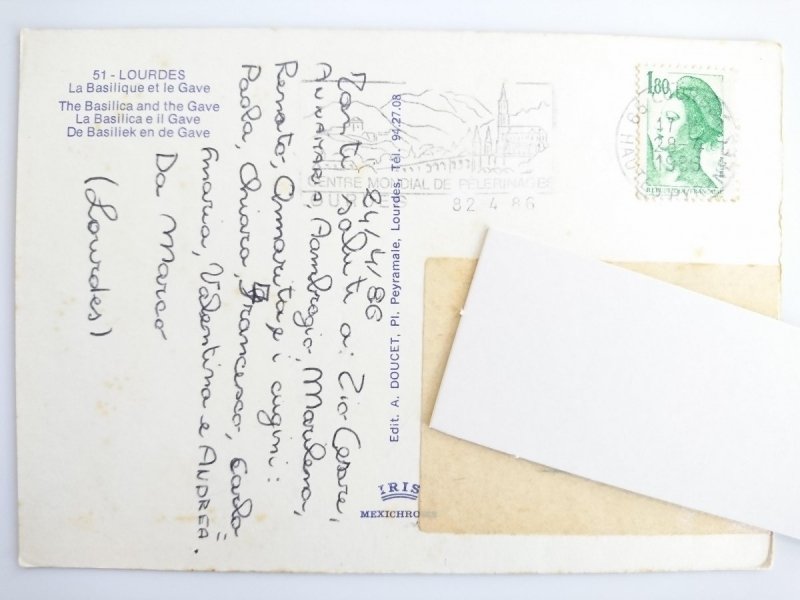 51 - LOURDES
La Basilique et le Gave
The Basilica and the Gave
La Basilica e il Gave
De Basiliek en de Gave
24/4/86
Tanti saluti a: Zio Cesare,
ANNAMARIA, Ambrogio, Marilena,
Renato, Omarita, e i cugini:
Paola, Chiara, Francesco, Carla
Maria, Valentina e ANDREA.
Da Marco
(Lourdes)
Edit. A. DOUCET, Pl. Peyramale, Lourdes, Tél. 94.27.08
IRIS
MEXICHROME
CENTRE MONDIAL DE PELERINAGES
82.4.86
1,80
REPUBLIQUE FRANÇAISE
17
28
1986